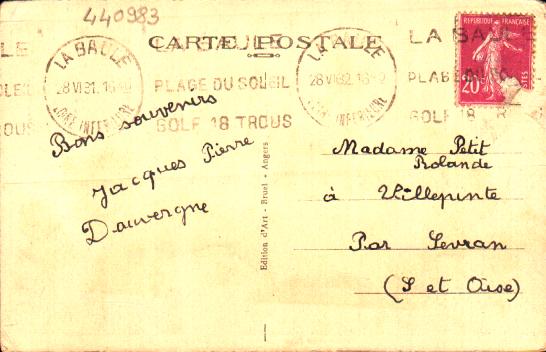 440983
CARTE POSTALE
LA BAULE
28 VI 31. 16
LOIRE INFERIEURE
LA BAULE
PLAGE DU SOLEIL
GOLF 18 TROUS
LA BAULE
28 VI 32. 16
LOIRE INFERIEURE
LA BAULE
PLAGE DU
GOLF 18
LE
LEIL
ROUS
REPUBLIQUE FRANÇAISE
20c
POSTES
Bons souvenirs
Jacques Pierre
Dauvergne
Edition d'Art - Bruel - Angers
Madame Petit
Rolande
à Villepinte
Par Sevran
(S et Oise)